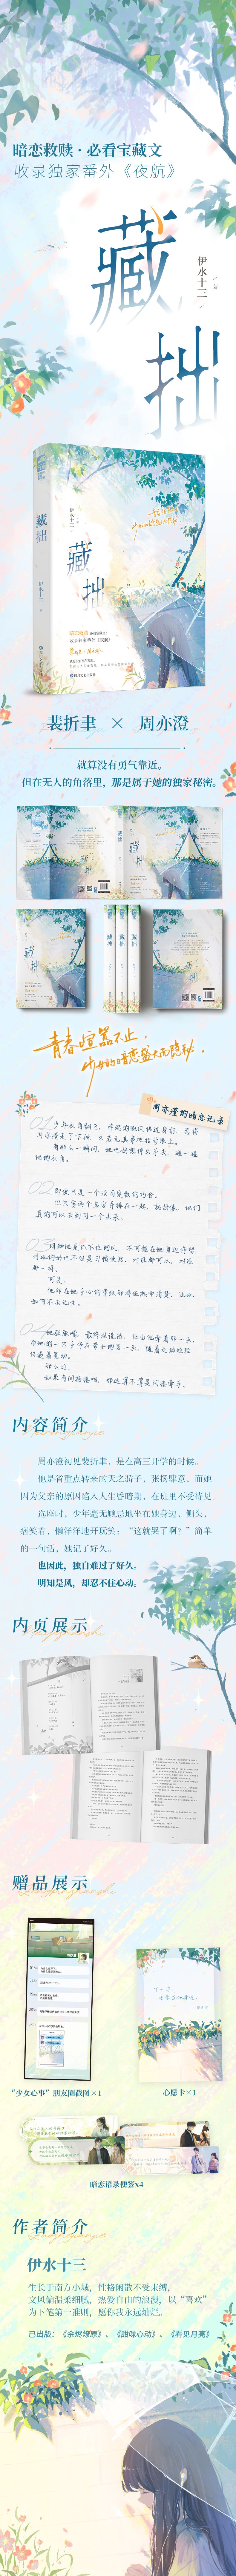 暗恋救赎·必看宝藏文
收录独家番外《夜航》
藏拙
伊水十三
著
藏拙
伊水十三
藏拙
伊水十三
收录独家番外《夜航》
裴折聿 × 周亦澄
就算没有勇气靠近。
但在无人的角落里，那是属于她的独家秘密。
藏拙
青春喧嚣不止，
少女的暗恋盛大而隐秘。
周亦澄的暗恋记录
01.少年衣角翻飞，带起的微风拂过身前，惹得
周亦澄走了下神，又若无其事地抬步跟上。
有那么一瞬间，她也好想伸出手去，碰一碰
他的衣角。
02.即使只是一个没有定数的约会。
但只要两个名字并排在一起，就好像，他们
真的可以去到同一个未来。
03.明知他是抓不住的风，不可能在她身边停留，
对她的好也不过是习惯使然，对谁都可以，对谁
都一样。
可是。
他印在她手心的掌纹那样温热而清楚，让她
如何不去记住。
内容简介
周亦澄初见裴折聿，是在高三开学的时候。
他是省重点转来的天之骄子，张扬肆意，而她
因为父亲的原因陷入人生昏暗期，在班里不受待见。
选座时，少年毫无顾忌地坐在她身边，侧头，
痞笑着，懒洋洋地开玩笑：“这就哭了啊？”简单
的一句话，她记了好久。
也因此，独自难过了好久。
明知是风，却忍不住心动。
内页展示
赠品展示
“少女心事”朋友圈截图×1
心愿卡×1
暗恋语录便签x4
作者简介
伊水十三
生长于南方小城，性格闲散不受束缚，
文风偏温柔细腻，热爱自由的浪漫，以“喜欢”
为下笔第一准则，愿你我永远灿烂。
已出版：《余烬燎原》、《甜味心动》、《看见月亮》